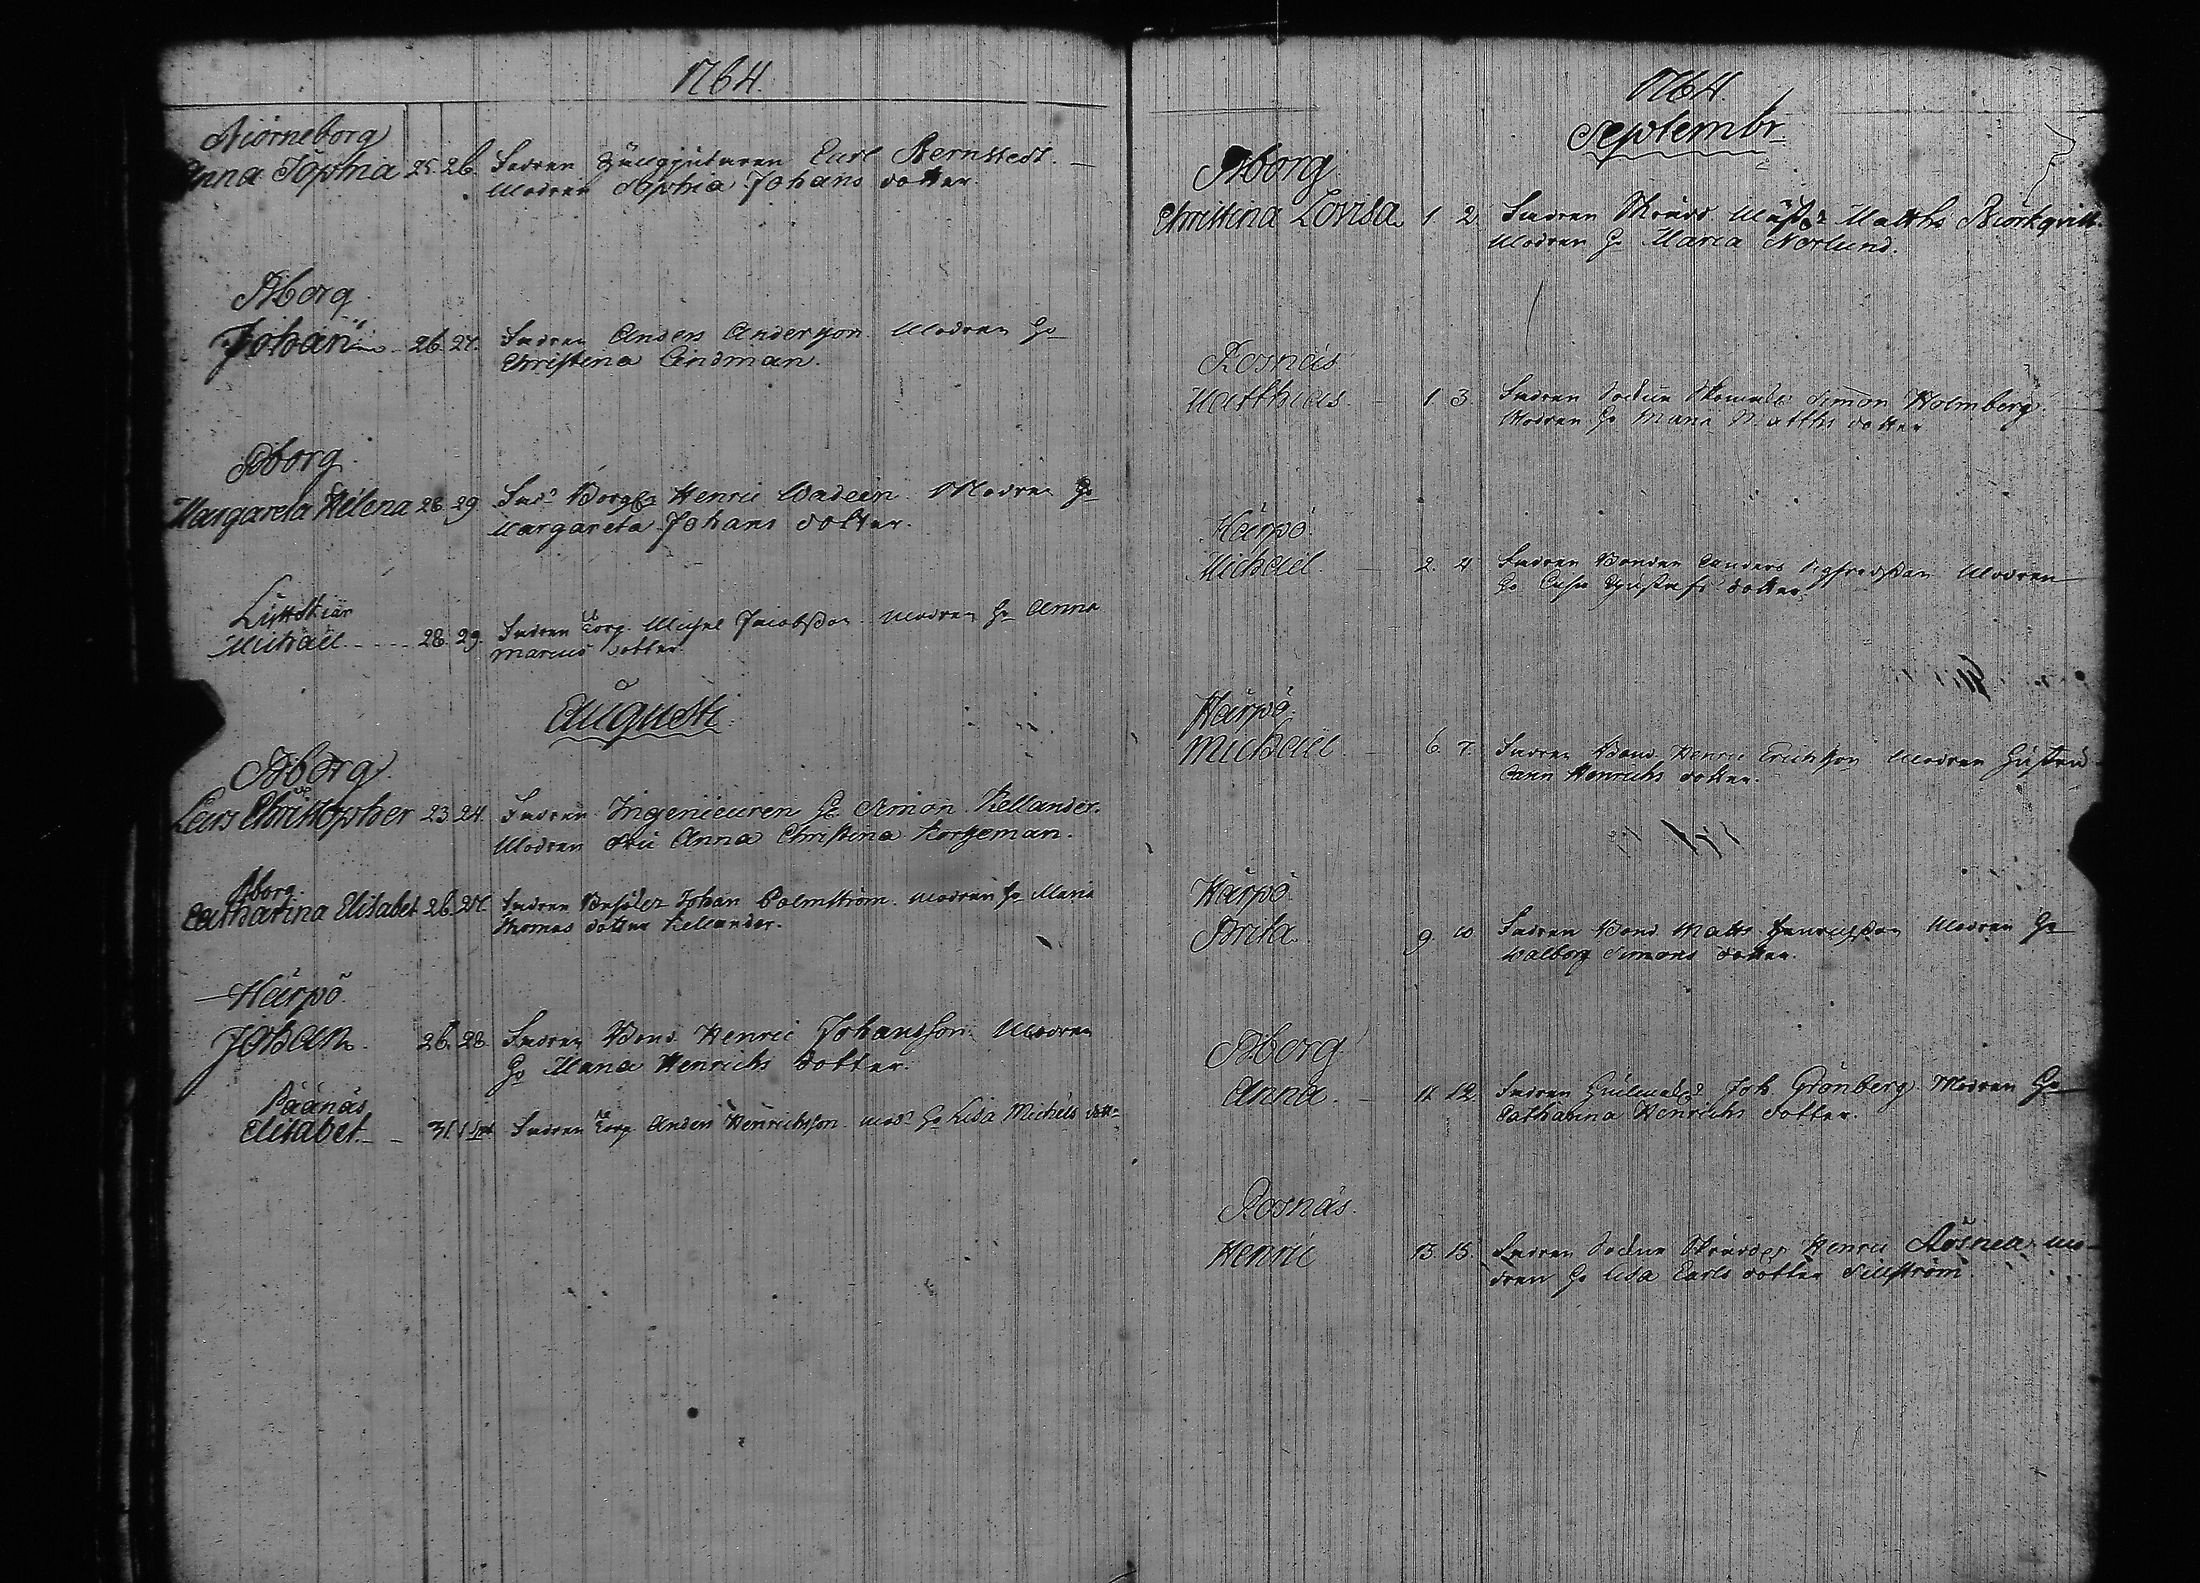 1764.
Biörneborg
Anna Sophia 25. 26. Fadren Carl Bernstedt.
Modren Sophia Johans dotter.
Bborg
Johan 26. 27. Fadren Anders Andersson Modren H:
Christina Lindman.
Bborg
Margareta Helena 28. 29. Fad: Borg: Henric Wadein Modren H:
Margareta Johans dotter.
Lüttskiär
Michaël 28. 29. Fadren torp. Michel Jacobsson Modren H: Anna
Marcus dotter
Augusti
Bborg
Lars Christopher 23. 24. Fadren Ingenieuren H: Simon Kellander.
Modren Fru Anna Christina
Bborg.
Catharina Elisabet 26. 27. Fadren Johan Palmström. Modren H: Maria
Thomas dotter Kellander.
Härpö
Johan 26. 28. Fadren Bond. Henric Johansson. Modren
H: Maria Henrichs dotter.
Päänäs
Elisabet 31. 1 Sept. Fadren torp. Anders Henrichsson. mod: H: Lisa Michels dott:
1764.
Septembr
Bborg
Christina Lovisa 1 2 Fadren Matths Biörkqvist.
Modren H: Maria Norlund.
Rosnäs
Matthias 1 3. Fadren Sockne Skomak: Simon Holmberg.
Modren H: Maria Matths dotter
Härpö
Michaël. 2. 4 Fadren Bonden Anders Sigfredsson Modren
H: Gustafs dotter.
Härpö.
Michaël 6. 7. Fadren Bond. Henric Erichsson Modren Hustru
Carin Henrichs dotter.
Härpö
Brita. 9. 10 Fadren Bond. Matts Henricsson Modren H:
Walborg Simons dotter.
Bborg
Anna. 11. 12. Fadren Joh. Grönberg. Modren H:
Catharina Henrichs dotter.
Rosnäs.
Henric 13. 15. Fadren Sockne Skrädder Henric Mo-
dren H: Lisa Carls dotter